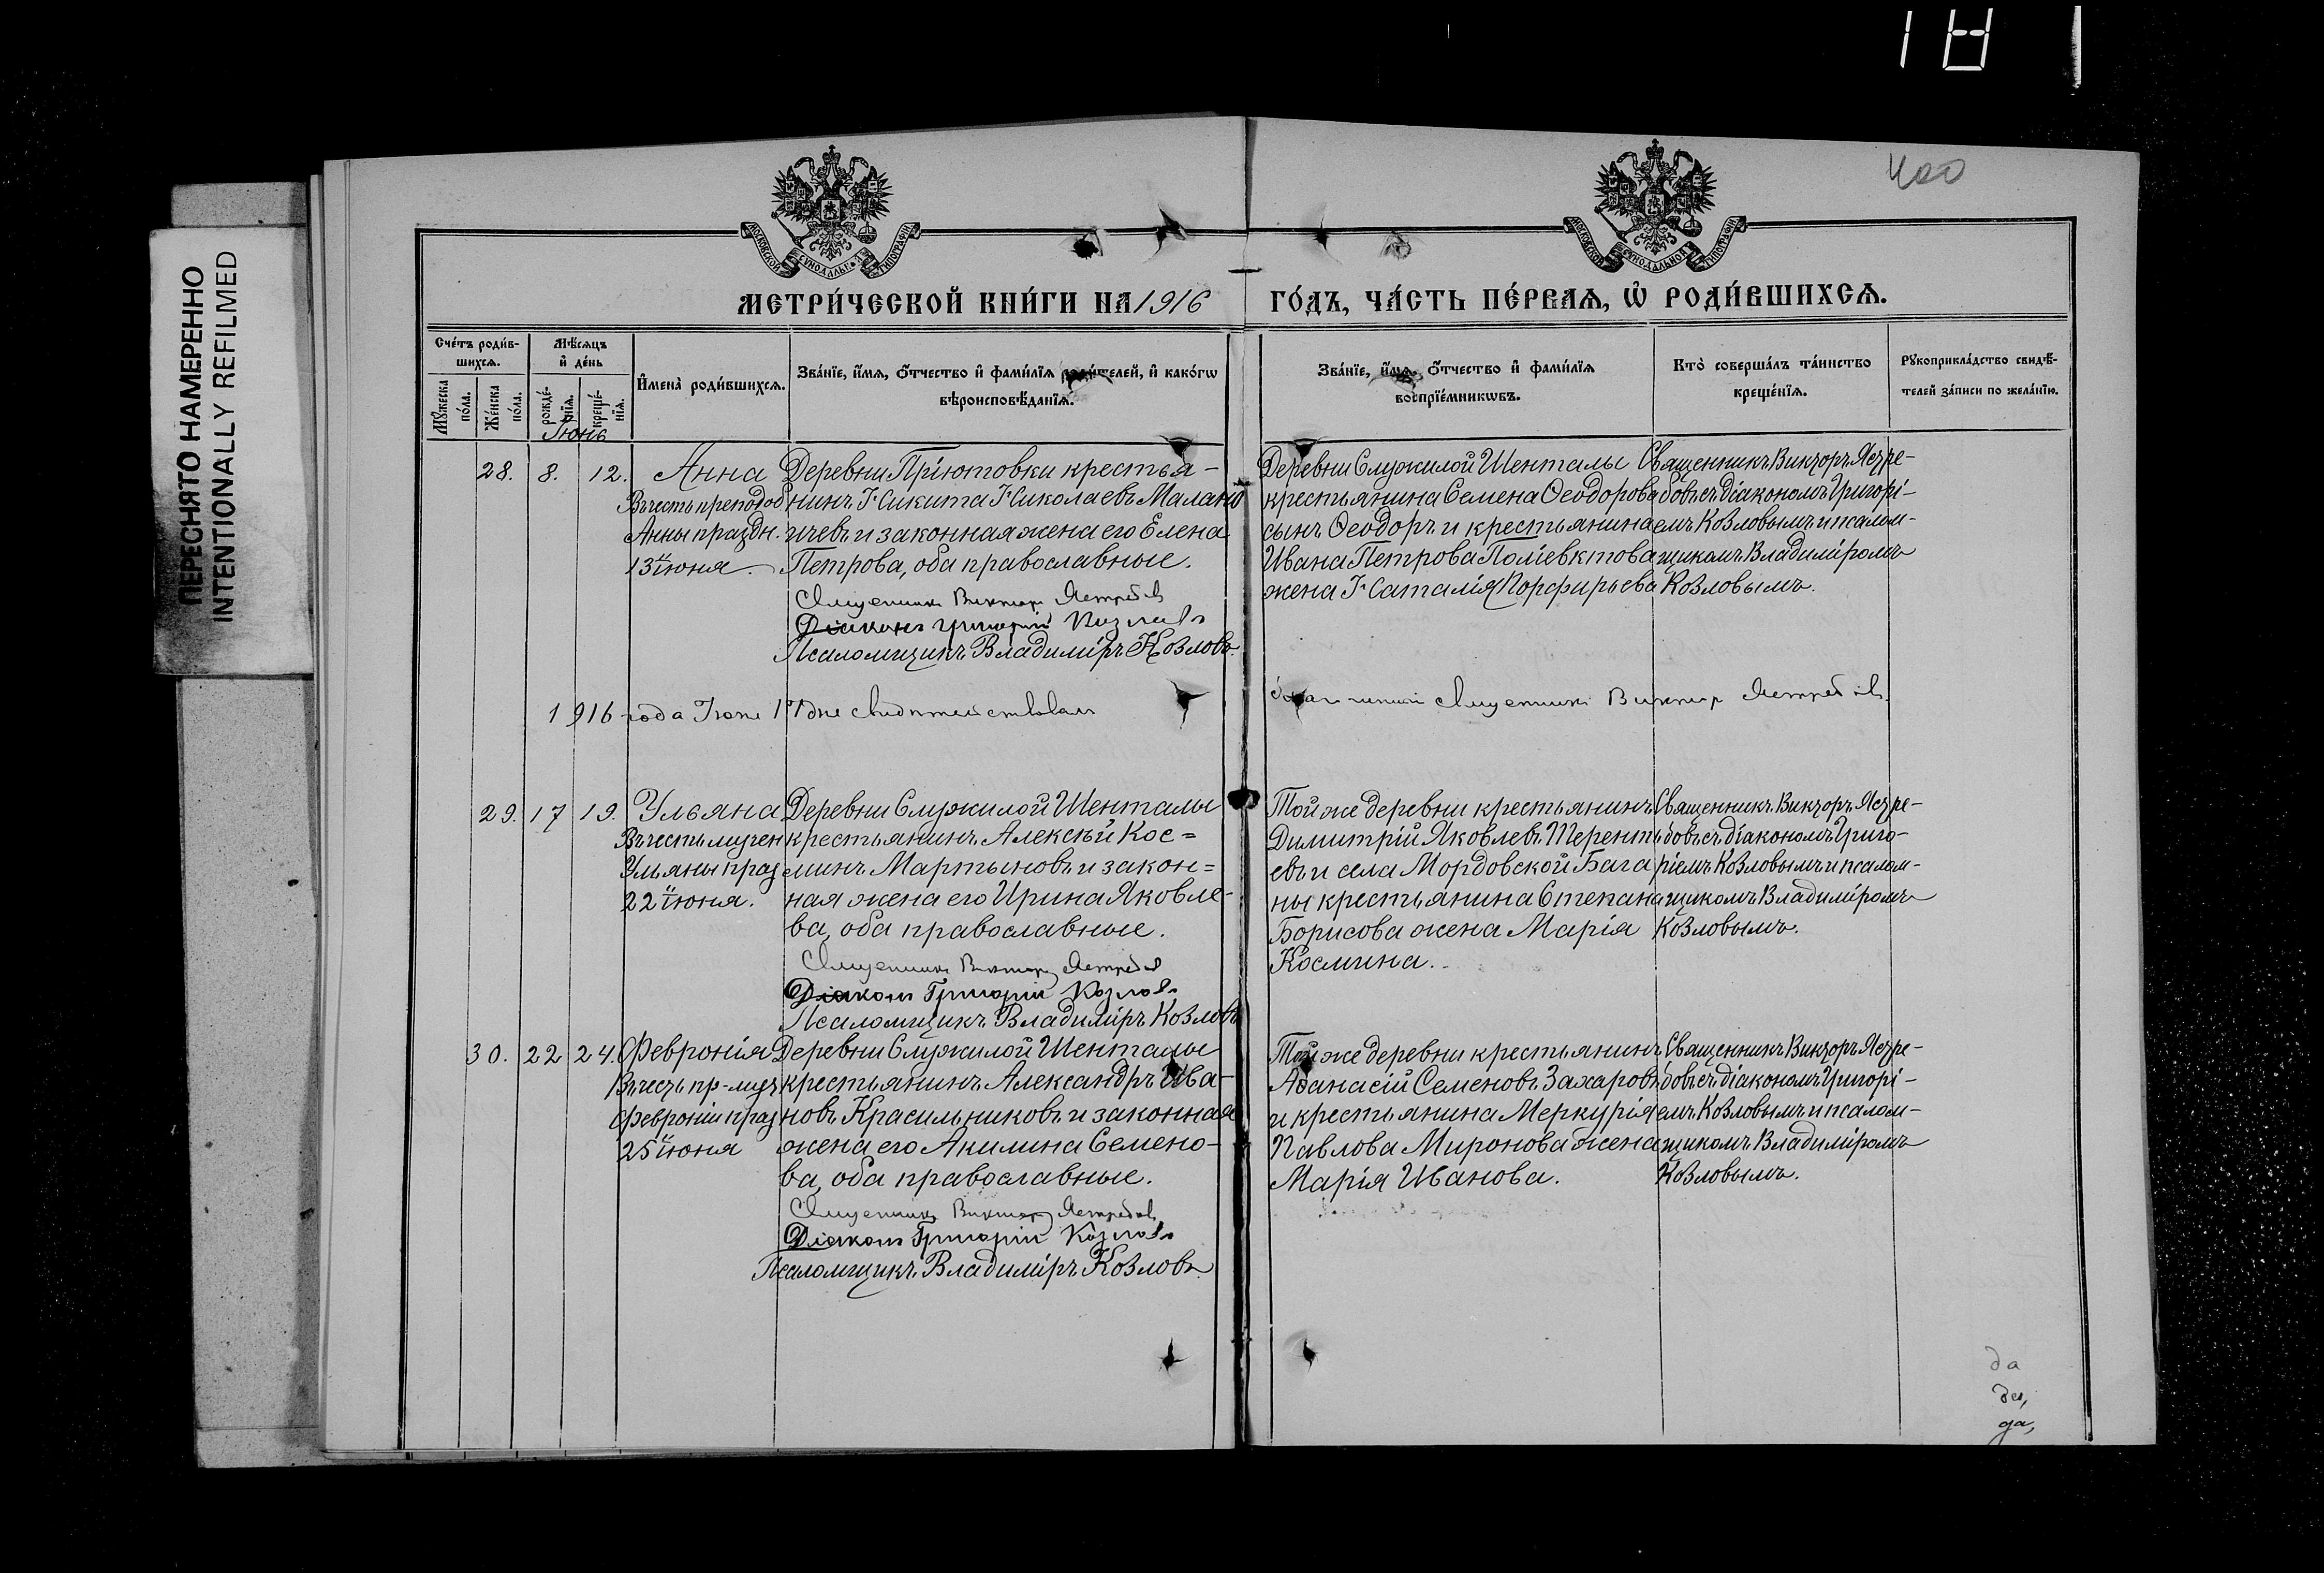 ПЕРЕСНЯТО НАМЕРЕННО
INTENTIONALLY REFILMED
400
МОСКОВСКОЙ СѴНОДАЛЬНОЙ ТИПОГРАФІИ
МОСКОВСКОЙ СѴНОДАЛЬНОЙ ТИПОГРАФІИ
МЕТРИ́ЧЕСКОЙ КНИ́ГИ НА 1916
ГО́ДЪ, ЧА́СТЬ ПЕ́РВАѦ, Ѽ РОДИ́ВШИХСѦ.
Сче́тъ роди́в-
шихсѧ.
Мѣ́сѧцъ
и҆ де́нь
Мꙋ́жеска
по́ла.
Же́нска
по́ла.
рожде́-
нїѧ.
креще́-
нїѧ.
И҆мена̀ роди́вшихсѧ.
Зва́нїе, и҆́мѧ, ѻ҆́тчество и҆ фами́лїѧ роди́телей, и҆ како́гѡ
вѣроисповѣ́данїѧ.
Зва́нїе, и҆́мѧ, ѻ҆́тчество и҆ фами́лїѧ
воспрїе́мникѡвъ.
Кто̀ соверша́лъ та́инство
креще́нїѧ.
Рꙋкоприкла́дство свидѣ́-
телей за́писи по жела́нїю.
Іюнь
28. 8. 12.
Анна
Въ честь преподоб
Анны праздн.
13 іюня.
Деревни Пріютовки крестья-
нинъ Никита Николаевъ Малано
ичевъ и законная жена его Елена
Петрова, оба православные.
Священникъ Викторъ Ястребовъ
Діаконъ Григорій Козловъ
Псаломщикъ Владиміръ Козловъ.
Деревни Служилой Шенталы
крестьянина Семена Ѳеодорова
сынъ Ѳеодоръ и крестьянина
Ивана Петрова Поліевктова
жена Наталія Порфирьева
Священникъ Викторъ Ястре-
бовъ съ діакономъ Григорі-
емъ Козловымъ и псалом-
щикомъ Владиміромъ
Козловымъ.
1916 года Іюня 17 дня свидѣтельствовалъ
священникъ Викторъ Ястребовъ.
29. 17 19.
Ульяна
Въ честь мучен
Ульяны праз
22 іюня.
Деревни Служилой Шенталы
крестьянинъ Алексѣй Кос=
минъ Мартыновъ и закон=
ная жена его Ирина Яковле-
ва, оба православные.
Священникъ Викторъ Ястребовъ
Діаконъ Григорій Козловъ
Псаломщикъ Владиміръ Козловъ
Той же деревни крестьянинъ
Димитрій Яковлевъ Теренть
евъ и села Мордовской Бага
ны крестьянина Степана
Борисова жена Марія
Космина.
Священникъ Викторъ Ястре-
бовъ съ діакономъ Григо-
ріемъ Козловымъ и псалом-
щикомъ Владиміромъ
Козловымъ.
30. 22 24.
Февронія
Въ честь пр-муч
Февроніи праз
25 іюня
Деревни Служилой Шенталы
крестьянинъ Александръ Ива-
новъ Красильниковъ и законная
жена его Акилина Семено-
ва, оба православные.
Священникъ Викторъ Ястребовъ
Діаконъ Григорій Козловъ
Псаломщикъ Владиміръ Козловъ.
Той же деревни крестьянинъ
Аѳанасій Семеновъ Захаровъ
и крестьянина Меркурія
Павлова Миронова жена
Марія Иванова.
Священникъ Викторъ Ястре-
бовъ съ діакономъ Григорі-
емъ Козловымъ и псалом-
щикомъ Владиміромъ
Козловымъ.
да
да,
да,